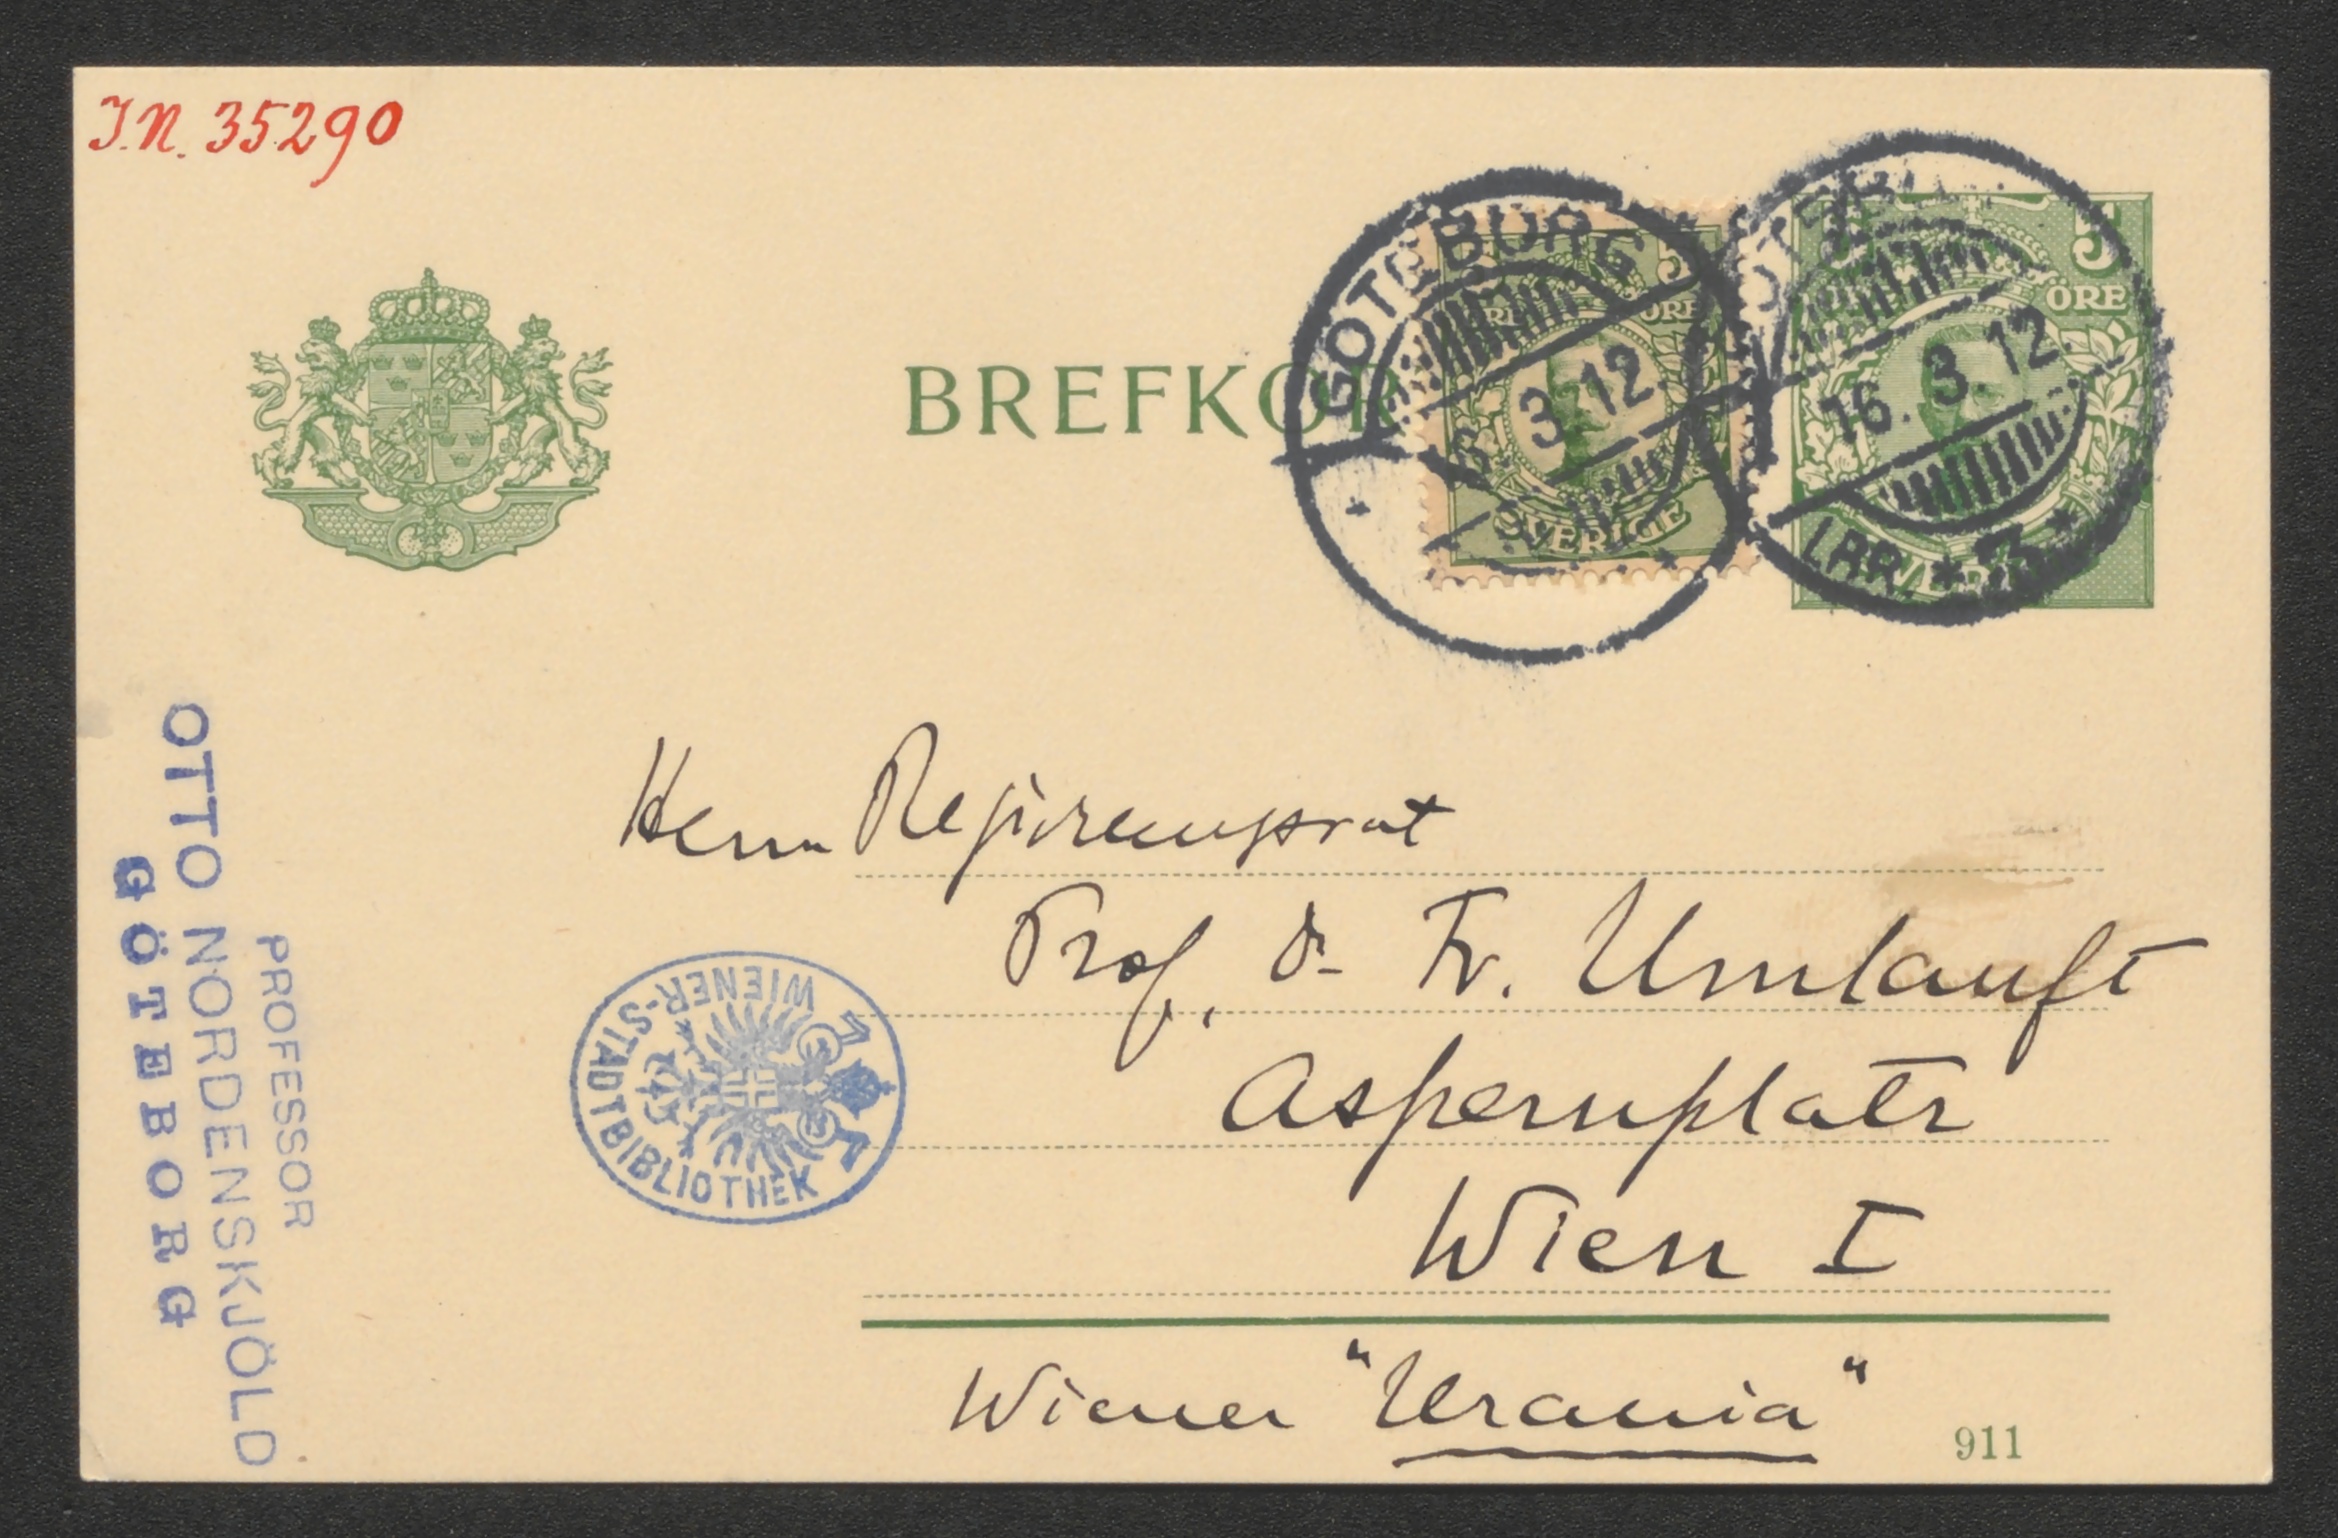 J.N. 35290
BREFKOR
GÖTEBORG
3.12.
5
ÖRE
SVERIGE
16. 3. 12.
LBR. * 3 *
5
ÖRE
PROFESSOR
OTTO NORDENSKJÖLD
GÖTEBORG
WIENER-STADTBIBLIOTHEK
Herrn Regirerungsrat
Prof. Dr Fr. Umlauft
Aspernplatz
Wien I
Wiener "Urania"
911